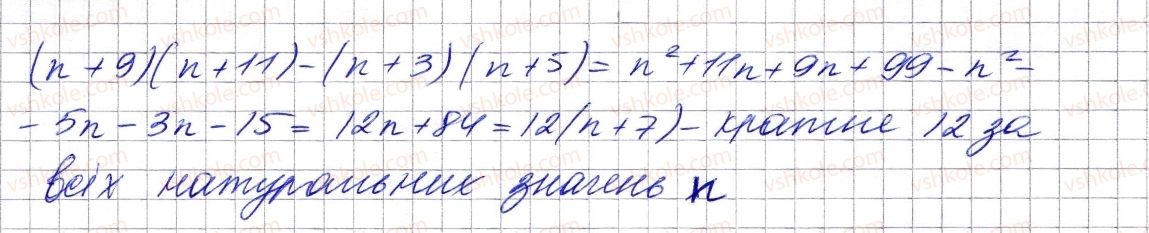 (n+9)(n+11)-(n+3)(n+5)= n²+11n+9n+99-n²-
-5n-3n-15= 12n+84=12(n+7)- кратне 12 за
всіх натуральних значень n